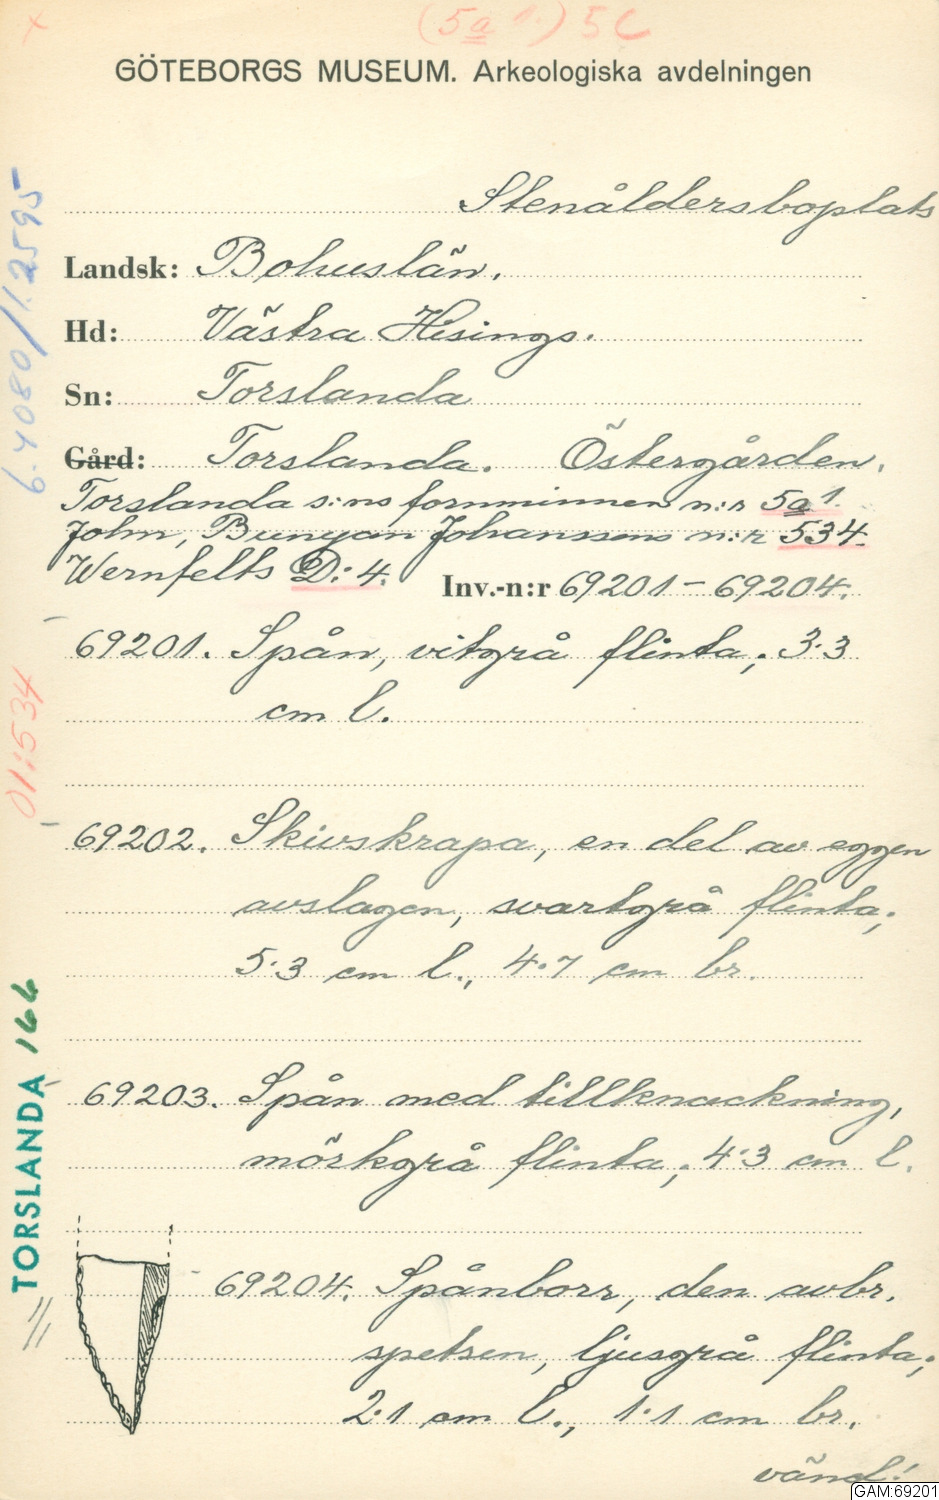 (5a 1.) 5C
GÖTEBORGS MUSEUM. Arkeologiska avdelningen
Stenåldersboplats
Landsk: Bohuslän.
Hd: Västra Hisings.
Sn: Torslanda
Gård: Torslanda. Östergården.
Torslanda s:ns fornminnen n:r 5a 1.
John, Bunyan Johanssons n:r 534.
Wernfelts D: 4.
Inv.-n:r 69201-69204.
69201. Spån, vitgrå flinta; 3.3
cm l.
69202. Skivskrapa, en del av eggen
avslagen, svartgrå flinta;
5.3 cm l., 4.7 cm br.
69203. Spån med tillknackning,
mörkgrå flinta; 4.3 cm l.
69204. Spånborr, den avbr.
spetsen, ljusgrå flinta;
2.1 cm l., 1.1 cm br.
vänd!
6.4080/1.2595
01:534
TORSLANDA 166
GAM:69201